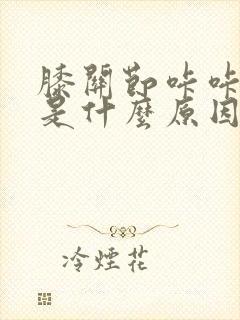 膝關節咔咔
是什麼原因
冷煙花